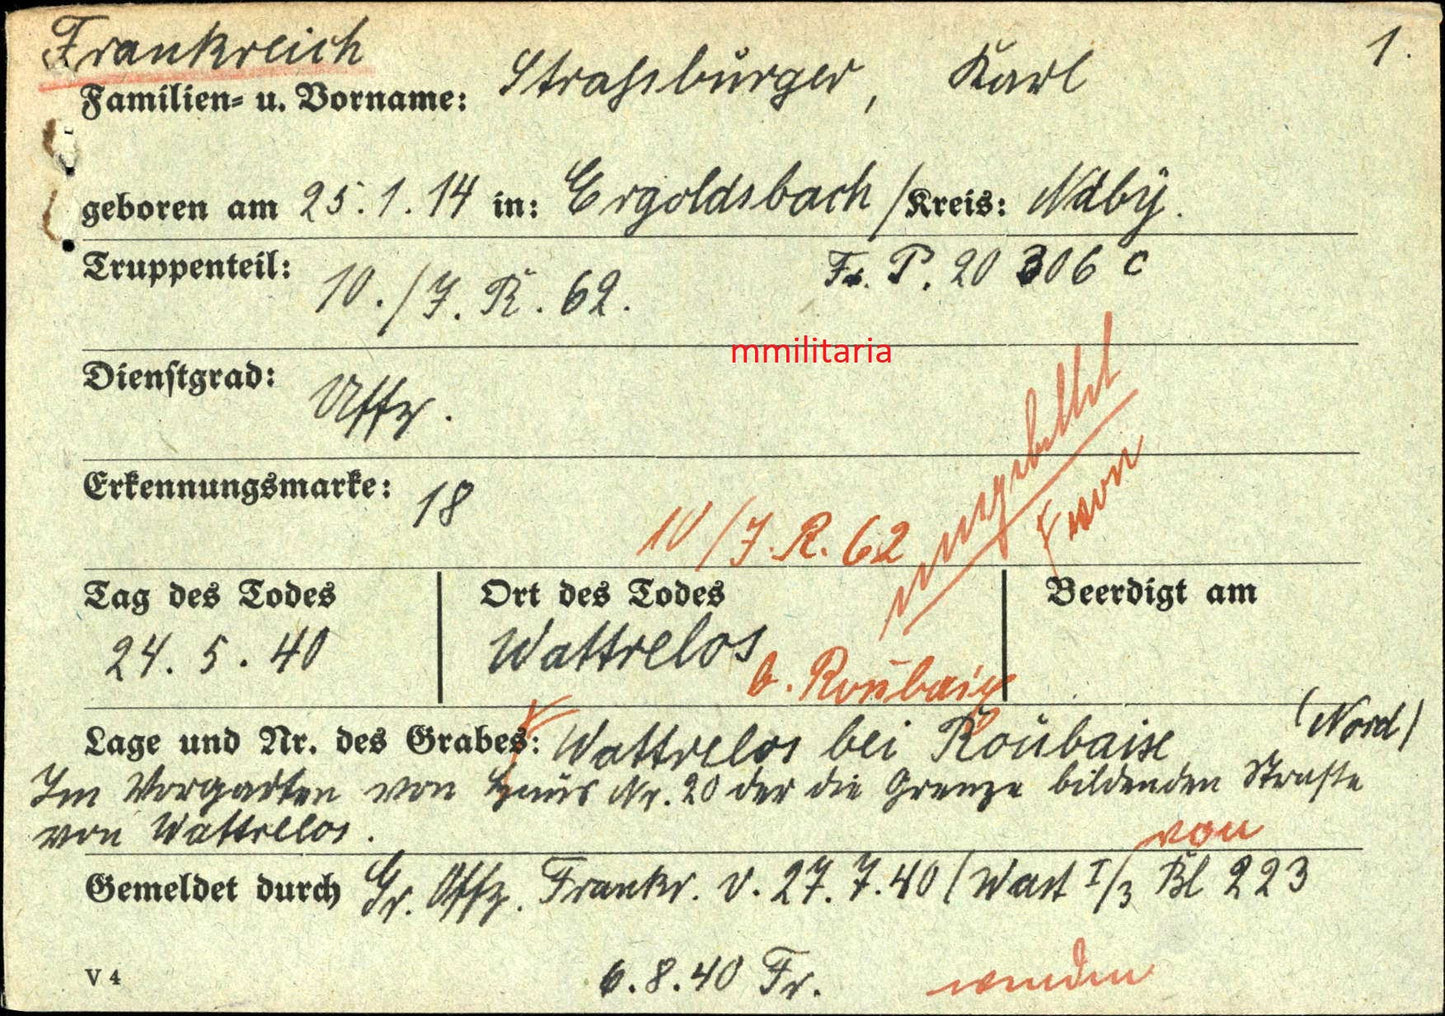 Frankreich
1.
Familien= u. Vorname: Strassburger, Karl
geboren am 25.1.14 in: Ergoldsbach / Kreis: Ndby.
Truppenteil: 10./I.R. 62. F. P. 20 306 c
mmilitaria
Dienstgrad: Uffz.
Erkennungsmarke: 18
10/I.R. 62
Tag des Todes Ort des Todes Beerdigt am
24. 5. 40 Wattrelos
b. Roubaix
Lage und Nr. des Grabes: Wattrelos bei Roubaix (Nord)
Im Vorgarten von Haus Nr. 20 der die Grenze bildenden Straße
von Wattrelos.
von
Gemeldet durch Gr. Offz. Frankr. v. 27.7.40 (Wast I/3 Bl 223
V 4 6.8.40 Fr. wenden